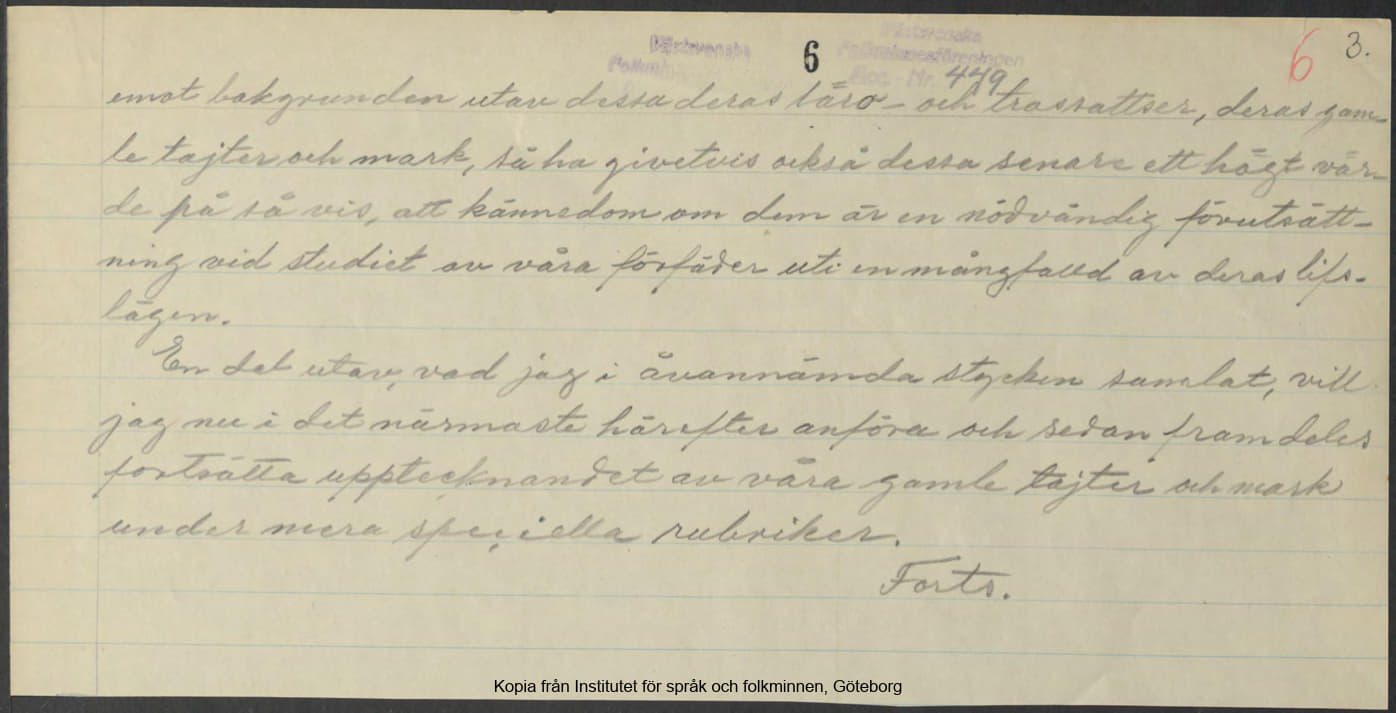 6
Västsvenska
Folkminnesföreningen
Acc. Nr. 449
6 3.
emot bakgrunden utav dessa deras läro- och trossattser, deras gam-
le tajter och mark, så ha givetvis också dessa senare ett högt vär-
de på så vis, att kännedom om dem är en nödvändig förutsätt-
ning vid studiet av våra förfäder uti en mångfalld av deras lifs-
lägen.
En del utav, vad jag i åvannämda stycken samlat, vill
jag nu i det närmaste härefter anföra och sedan framdeles
fortsätta upptecknandet av våra gamle tajter och mark
under mera speciella rubriker.
Forts.
Kopia från Institutet för språk och folkminnen, Göteborg